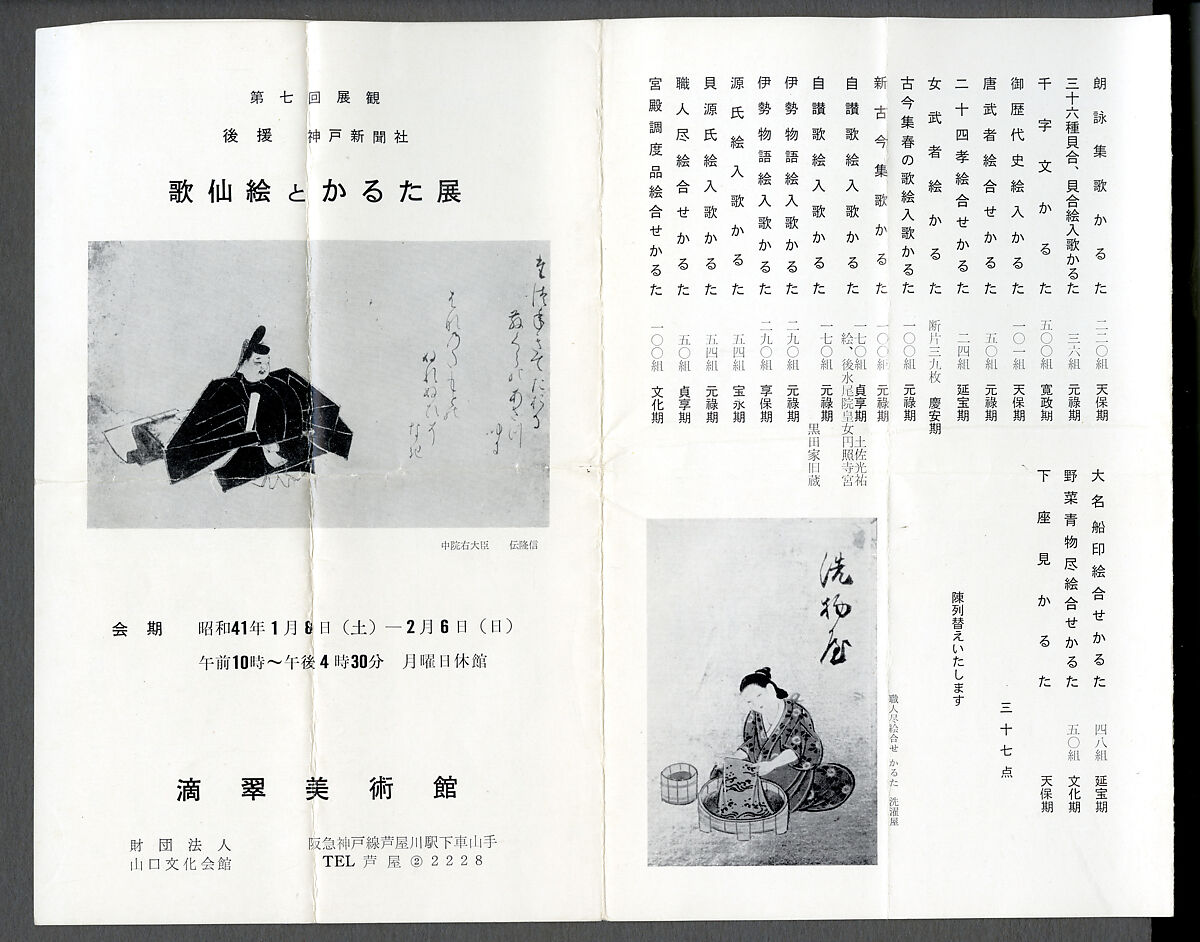 第七回展観
後援 神戸新聞社
歌仙絵とかるた展
中院右大臣 伝隆信
会期 昭和41年1月8日（土）―2月6日（日）
午前10時～午後4時30分 月曜日休館
滴翠美術館
財団法人
山口文化会館
阪急神戸線芦屋川駅下車山手
TEL 芦屋②2228
朗詠集歌かるた 二二〇組 天保期
三十六種貝合、貝合絵入歌かるた 三六組 元祿期
千字文かるた 五〇〇組 寛政期
御歴代史絵入かるた 一〇一組 天保期
唐武者絵合せかるた 五〇組 元祿期
二十四孝絵合せかるた 二四組 延宝期
女武者絵かるた 断片三九枚 慶安期
古今集春の歌絵入歌かるた 一〇〇組 元祿期
新古今集歌かるた 一〇〇組 元祿期
自讃歌絵入歌かるた 一七〇組 貞享期 土佐光祐
絵、後水尾院皇女円照寺宮
自讃歌絵入歌かるた 一七〇組 元祿期
黒田家旧蔵
伊勢物語絵入歌かるた 二九〇組 元祿期
伊勢物語絵入歌かるた 二九〇組 享保期
源氏絵入歌かるた 五四組 宝永期
貝源氏絵入歌かるた 五四組 元祿期
職人尽絵合せかるた 五〇組 貞享期
宮殿調度品絵合せかるた 一〇〇組 文化期
大名船印絵合せかるた 四八組 延宝期
野菜青物尽絵合せかるた 五〇組 文化期
下座見かるた 天保期
三十七点
陳列替えいたします
洗物屋
職人尽絵合せかるた 洗濯屋